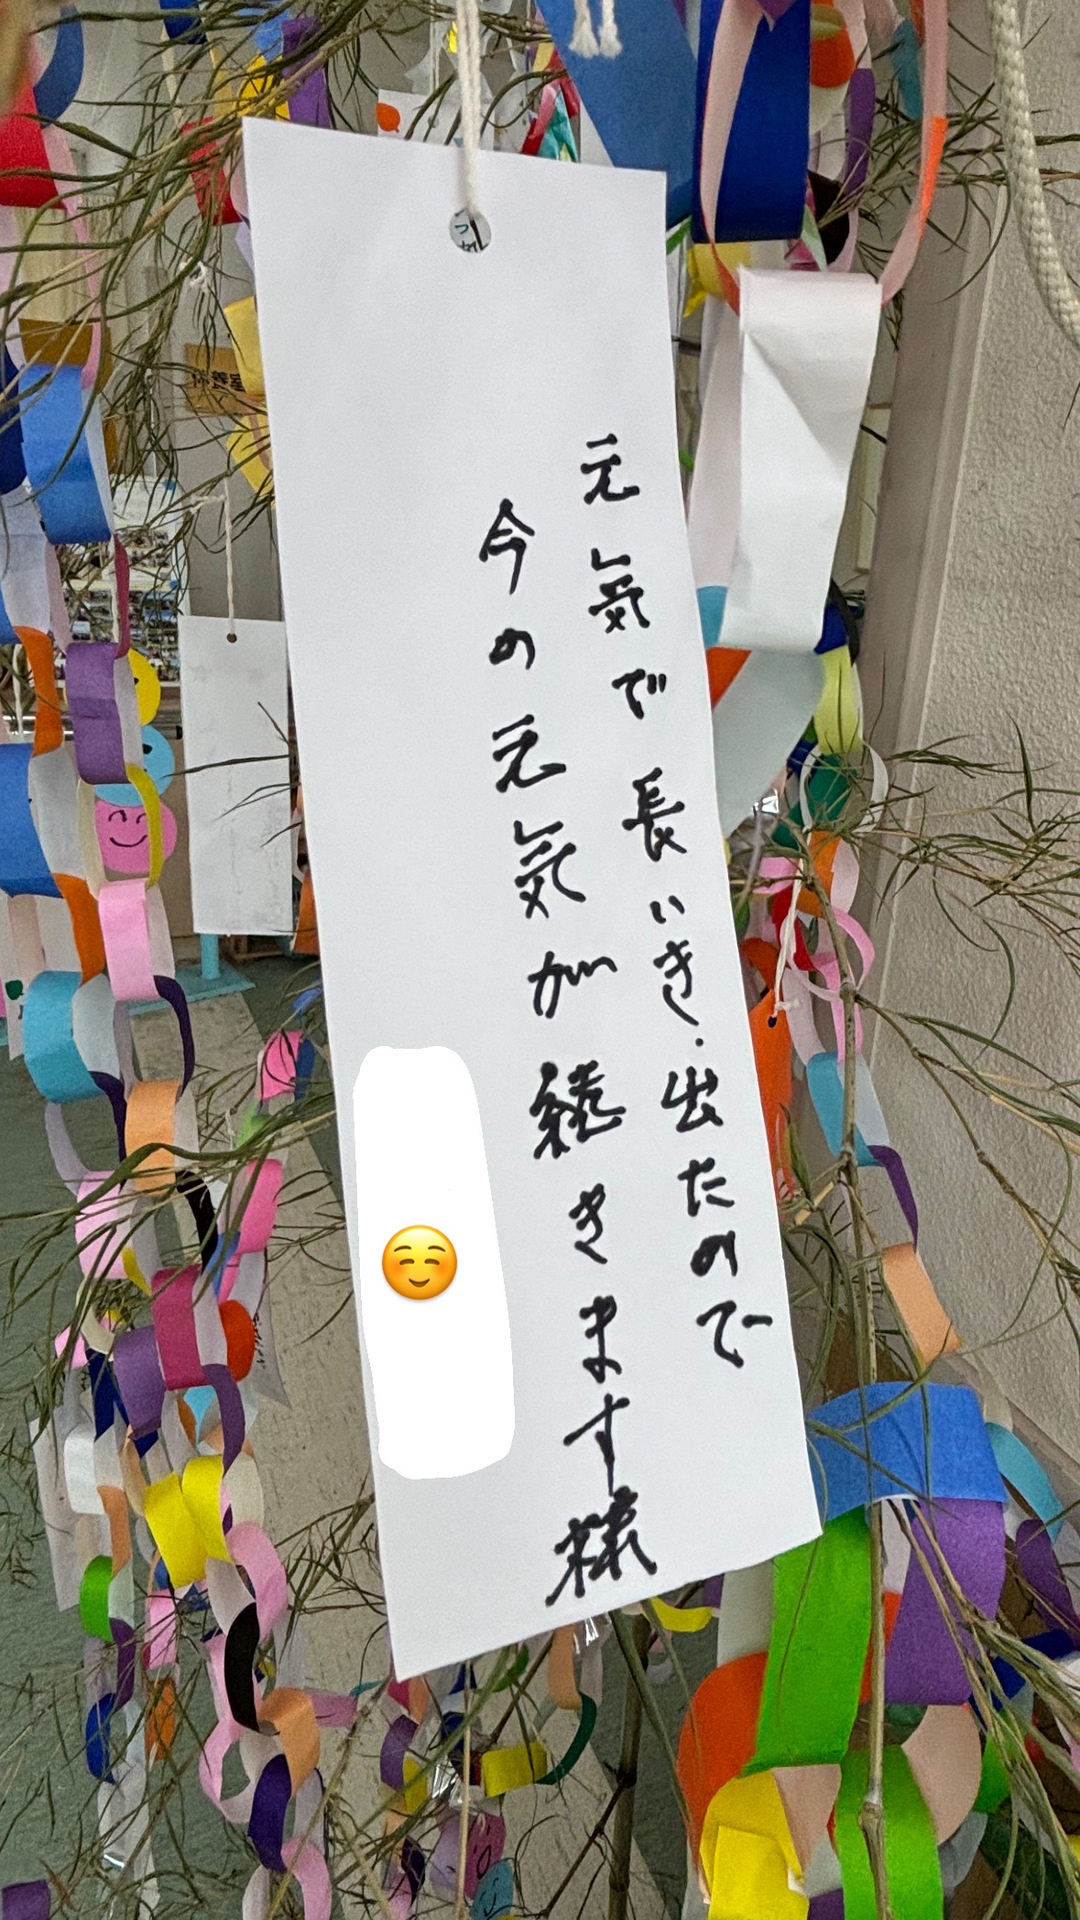 元気で長いき.出たので
今の元気が続きます様